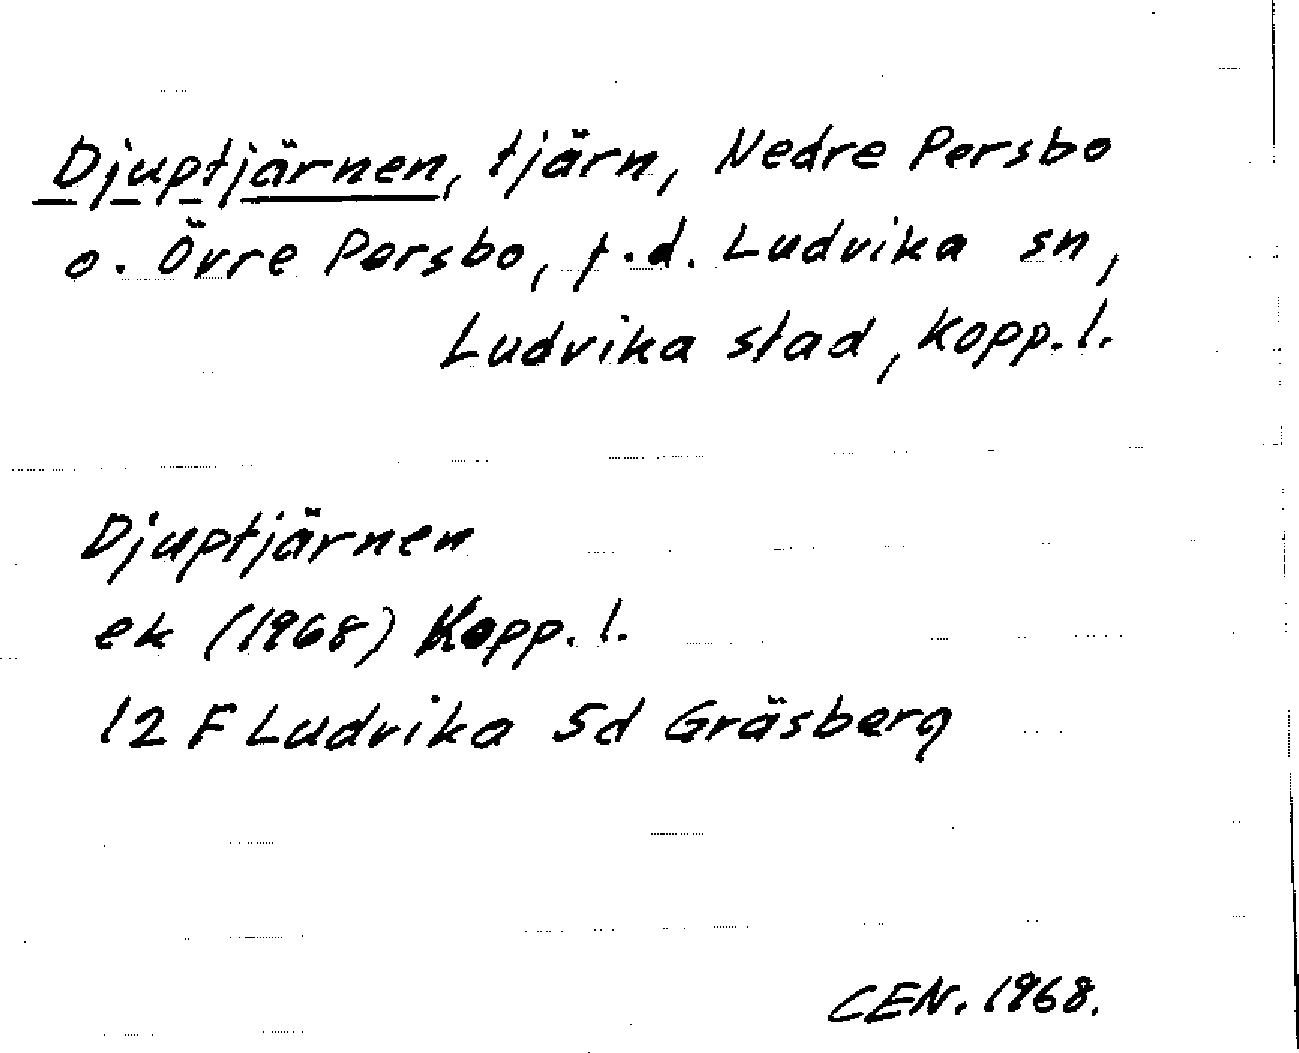 Djuptjärnen, tjärn, Nedre Persbo
o. Övre Persbo, f.d. Ludvika sn,
Ludvika stad, Kopp. l.
Djuptjärnen
ek (1968) Kopp. l.
12 F Ludvika 5d Gräsberg
CEN. 1968.